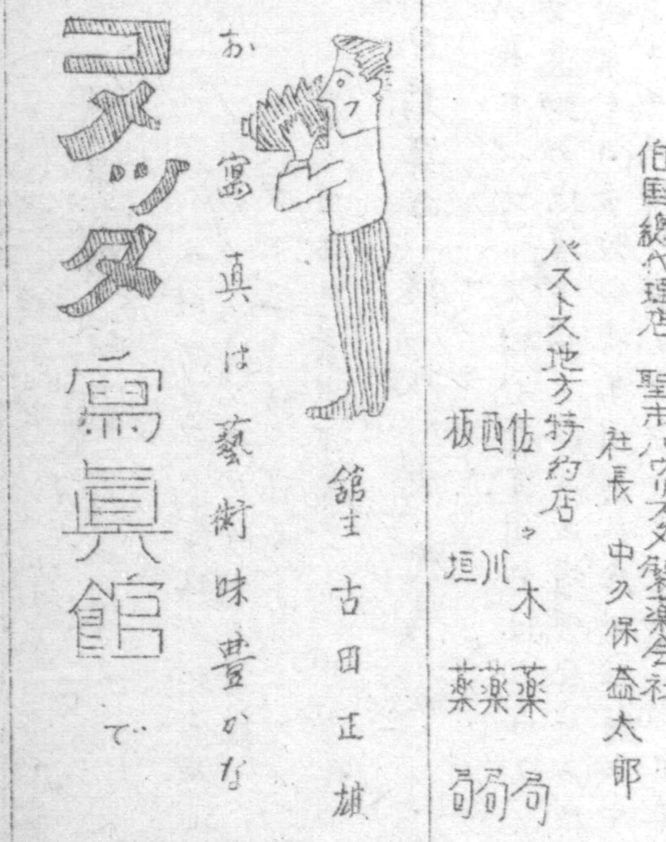 伯国總代理店 聖市パウリスタ製薬会社
社長 中久保益太郎
バストス地方特約店
佐々木薬局
西川薬局
板垣薬局
館主 古田正雄
お寫真は藝術味豊かな
コメッタ寫眞館で